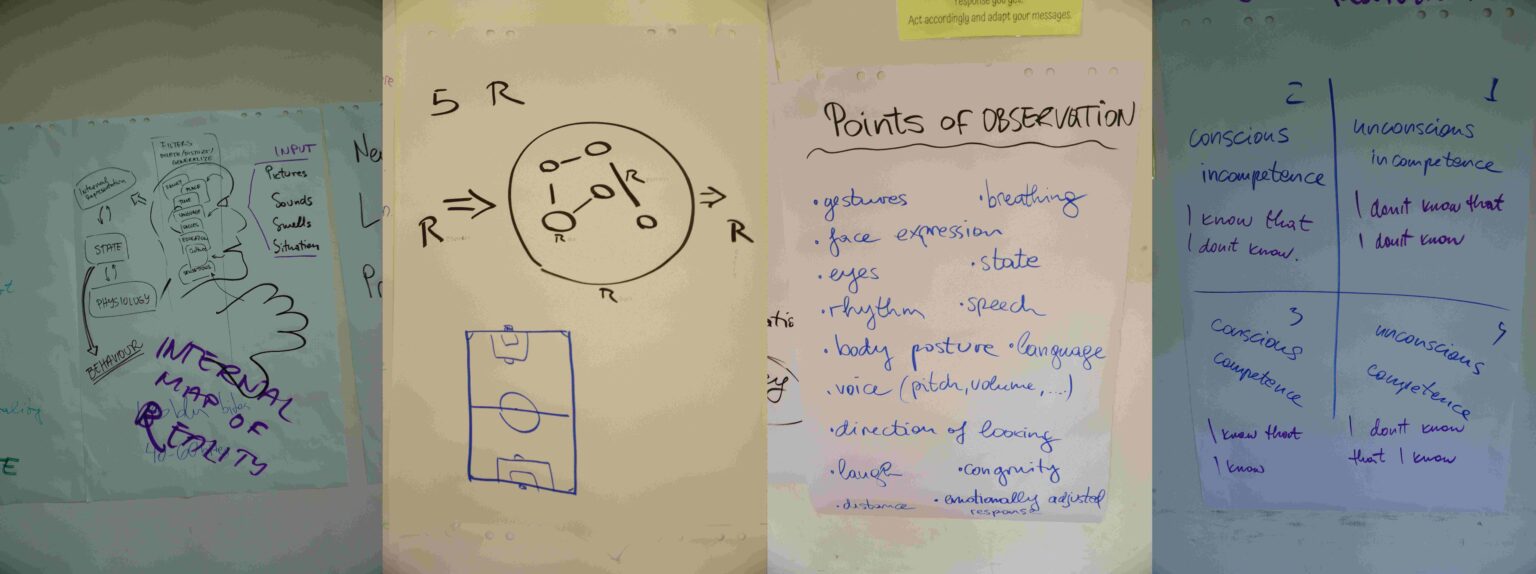 FILTERS
DELETE/DISTORT/
GENERALIZE
INPUT
Pictures
Sounds
Smells
Situation
Internal
Representation
STATE
PHYSIOLOGY
BEHAVIOUR
INTERNAL
MAP OF
REALITY
5 R
R
R
R
R
R
response you get.
Act accordingly and adapt your messages.
Points of OBSERVATION
• gestures
• breathing
• face expression
• eyes
• state
• rhythm
• speech
• body posture
• language
• voice (pitch, volume, ...)
• direction of looking
• laugh
• congruity
• distance
• emotionally adjusted
response
2
conscious
incompetence
I know that
I don't know.
1
unconscious
incompetence
I don't know that
I don't know
3
conscious
competence
I know that
I know
unconscious
competence
I don't know
that I know